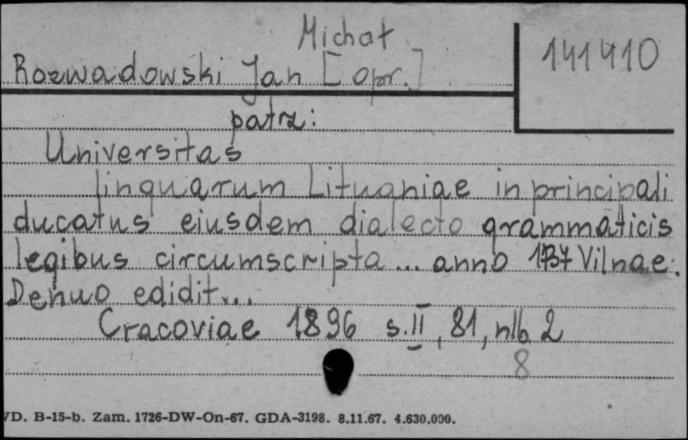 Michał
141410
Rozwadowski Jan [opr.]
patrz:
Universitas
linquarum Lituaniae in principali
ducatus eiusdem dialecto grammaticis
legibus circumscripta... anno 1737 Vilnae.
Denuo edidit...
Cracoviae 1896 s.II, 81, nlb. 2
8
WD. B-15-b. Zam. 1726-DW-On-67. GDA-3198. 8.11.67. 4.630.000.